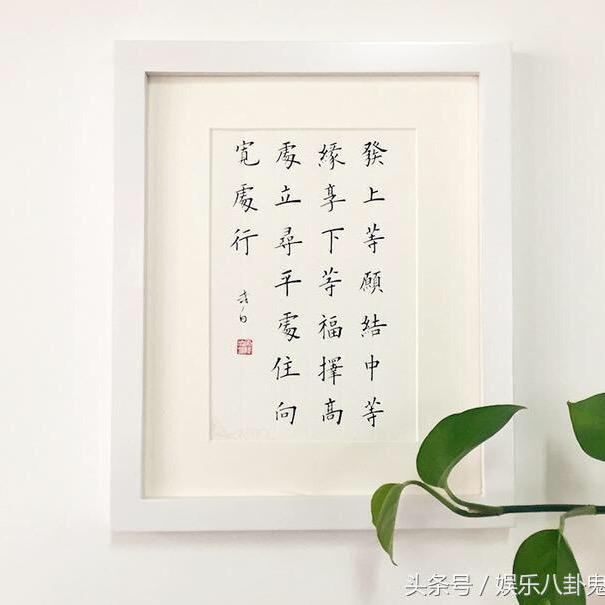 發上等願結中等
緣享下等福擇高
處立尋平處住向
寬處行
头条号 / 娱乐八卦鬼